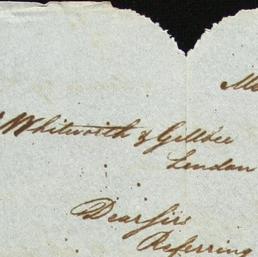 Me
Whitworth & Gillbee
London
Dear Sirs
Referring